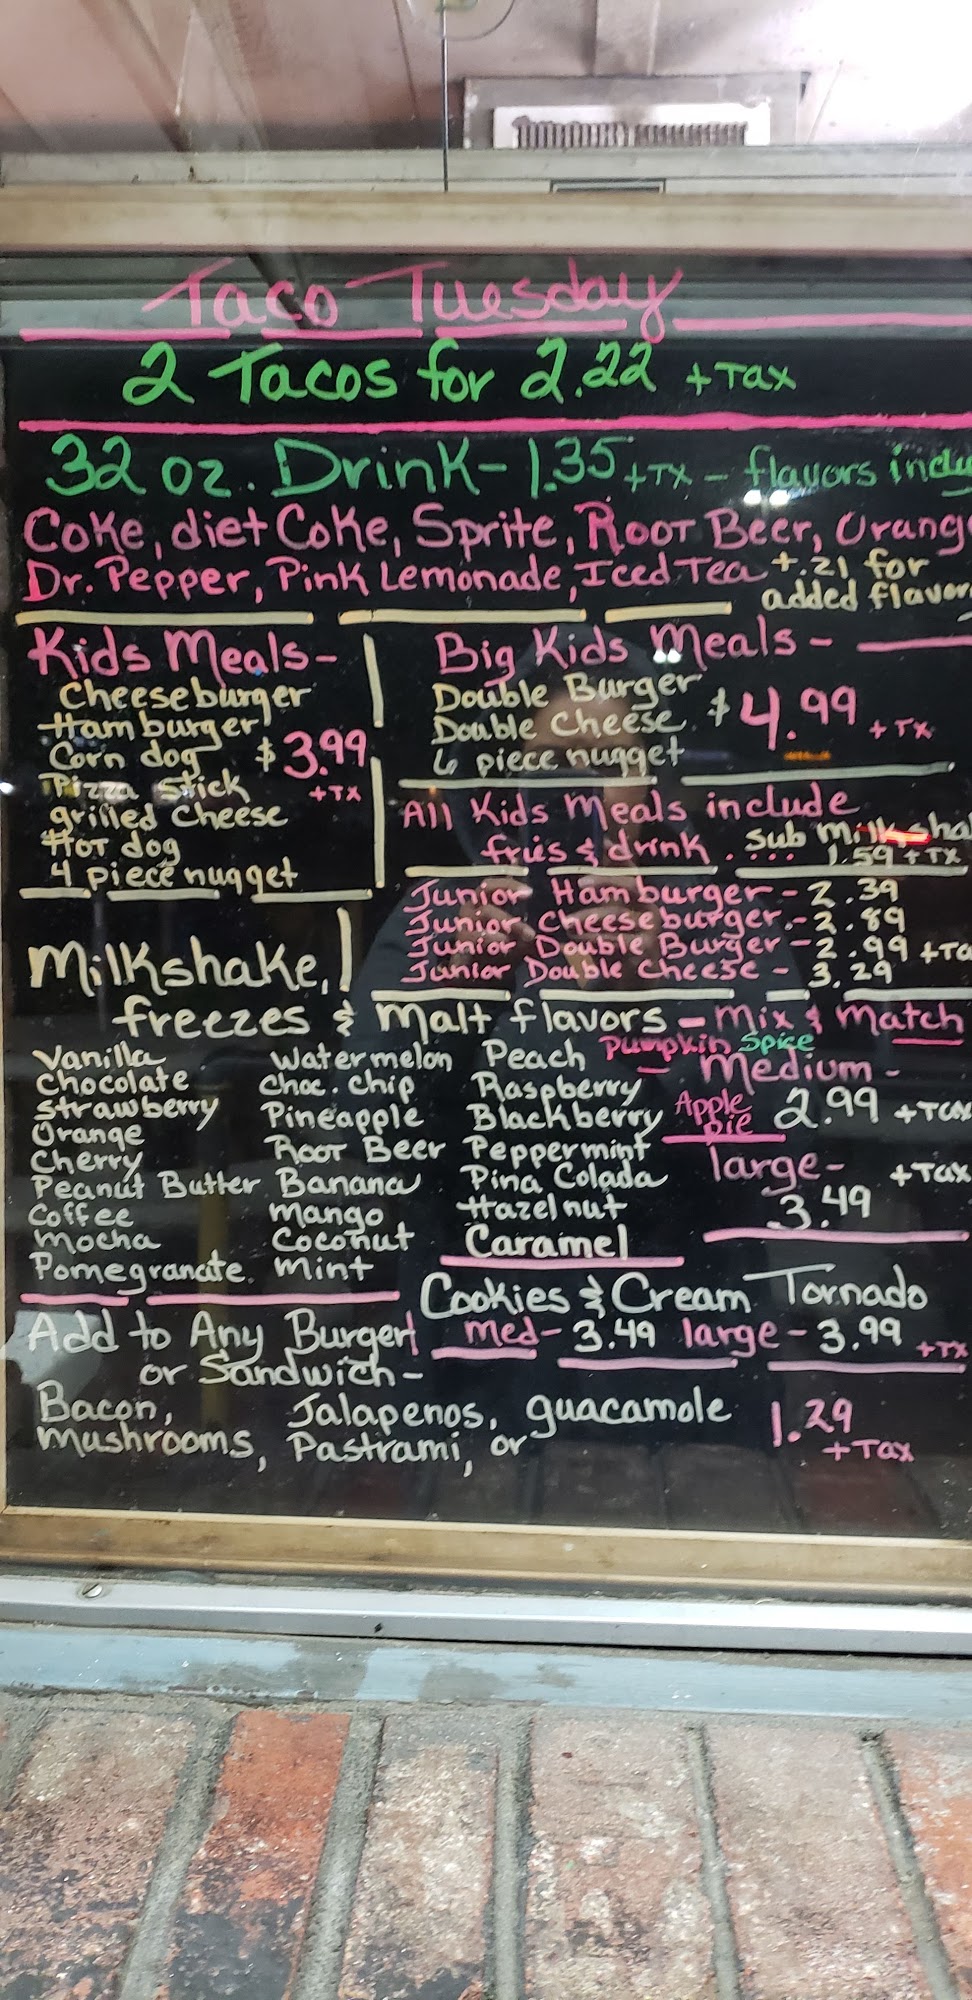 Taco Tuesday
2 Tacos for 2.22 + Tax
32 oz. Drink - 1.35 + TX - flavors inclu
Coke, diet Coke, Sprite, Root Beer, Orang
Dr. Pepper, Pink Lemonade, Iced Tea +.21 for
added flavor
Kids Meals-
Cheeseburger
Hamburger
Corn dog
Pizza Stick
grilled cheese
Hot dog
4 piece nugget
$3.99
+TX
Big Kids Meals -
Double Burger
Double Cheese
6 piece nugget
$4.99 + TX
All Kids Meals include
fries & drink.... Sub milksha
1.59 + TX
Junior Hamburger - 2.39
Junior Cheeseburger.- 2.89
Junior Double Burger - 2.99 +Ta
Junior Double Cheese - 3.29
Milkshake,
freezes & Malt flavors - Mix & Match
Vanilla
Chocolate
Strawberry
Orange
Cherry
Peanut Butter
Coffee
Mocha
Pomegranate
Watermelon
Choc. Chip
Pineapple
Root Beer
Banana
Mango
Coconut
Mint
Peach
Raspberry
Blackberry
Peppermint
Pina Colada
Hazelnut
Caramel
Pumpkin Spice
Apple
Pie
Medium -
2.99 +Tax
large- +Tax
3.49
Cookies & Cream Tornado
med- 3.49 large - 3.99 +TX
Add to Any Burger
or Sandwich-
Bacon, Jalapenos, guacamole
Mushrooms, Pastrami, or
1.29
+Tax